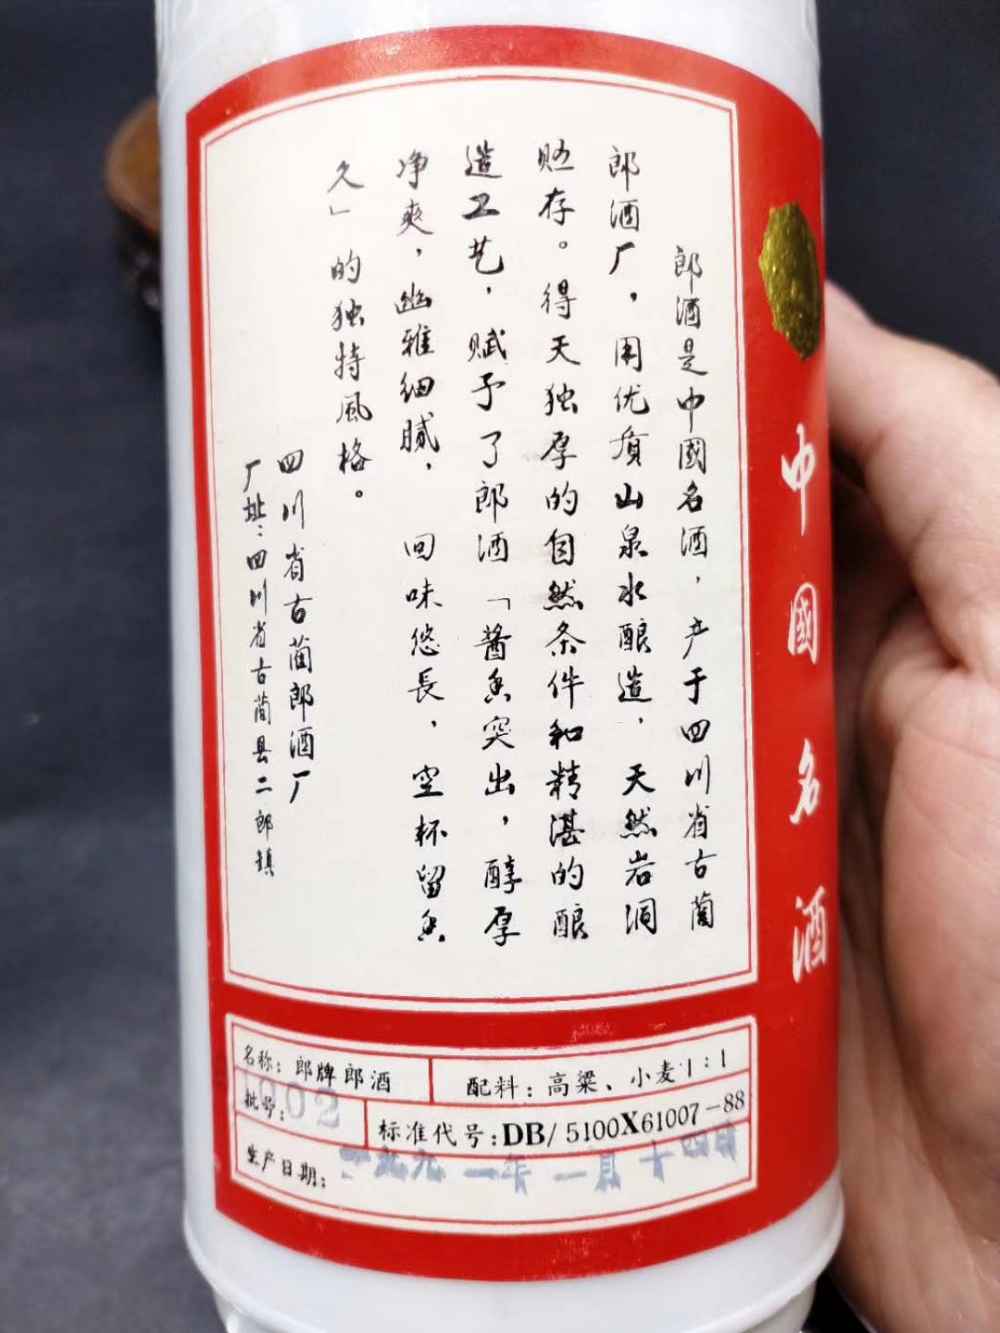 郎酒是中國名酒，产于四川省古蔺
郎酒厂，用优质山泉水酿造，天然岩洞
贮存。得天独厚的自然条件和精湛的酿
造工艺，赋予了郎酒「酱香突出，醇厚
净爽，幽雅细腻，回味悠長，空杯留香
久」的独特風格。
四川省古蔺郎酒厂
厂址：四川省古蔺县二郎镇
中國名酒
名称：郎牌郎酒
配料：高粱、小麦1:1
批号：002
标准代号：DB/5100X61007-88
生产日期：一九九一年一月十四日